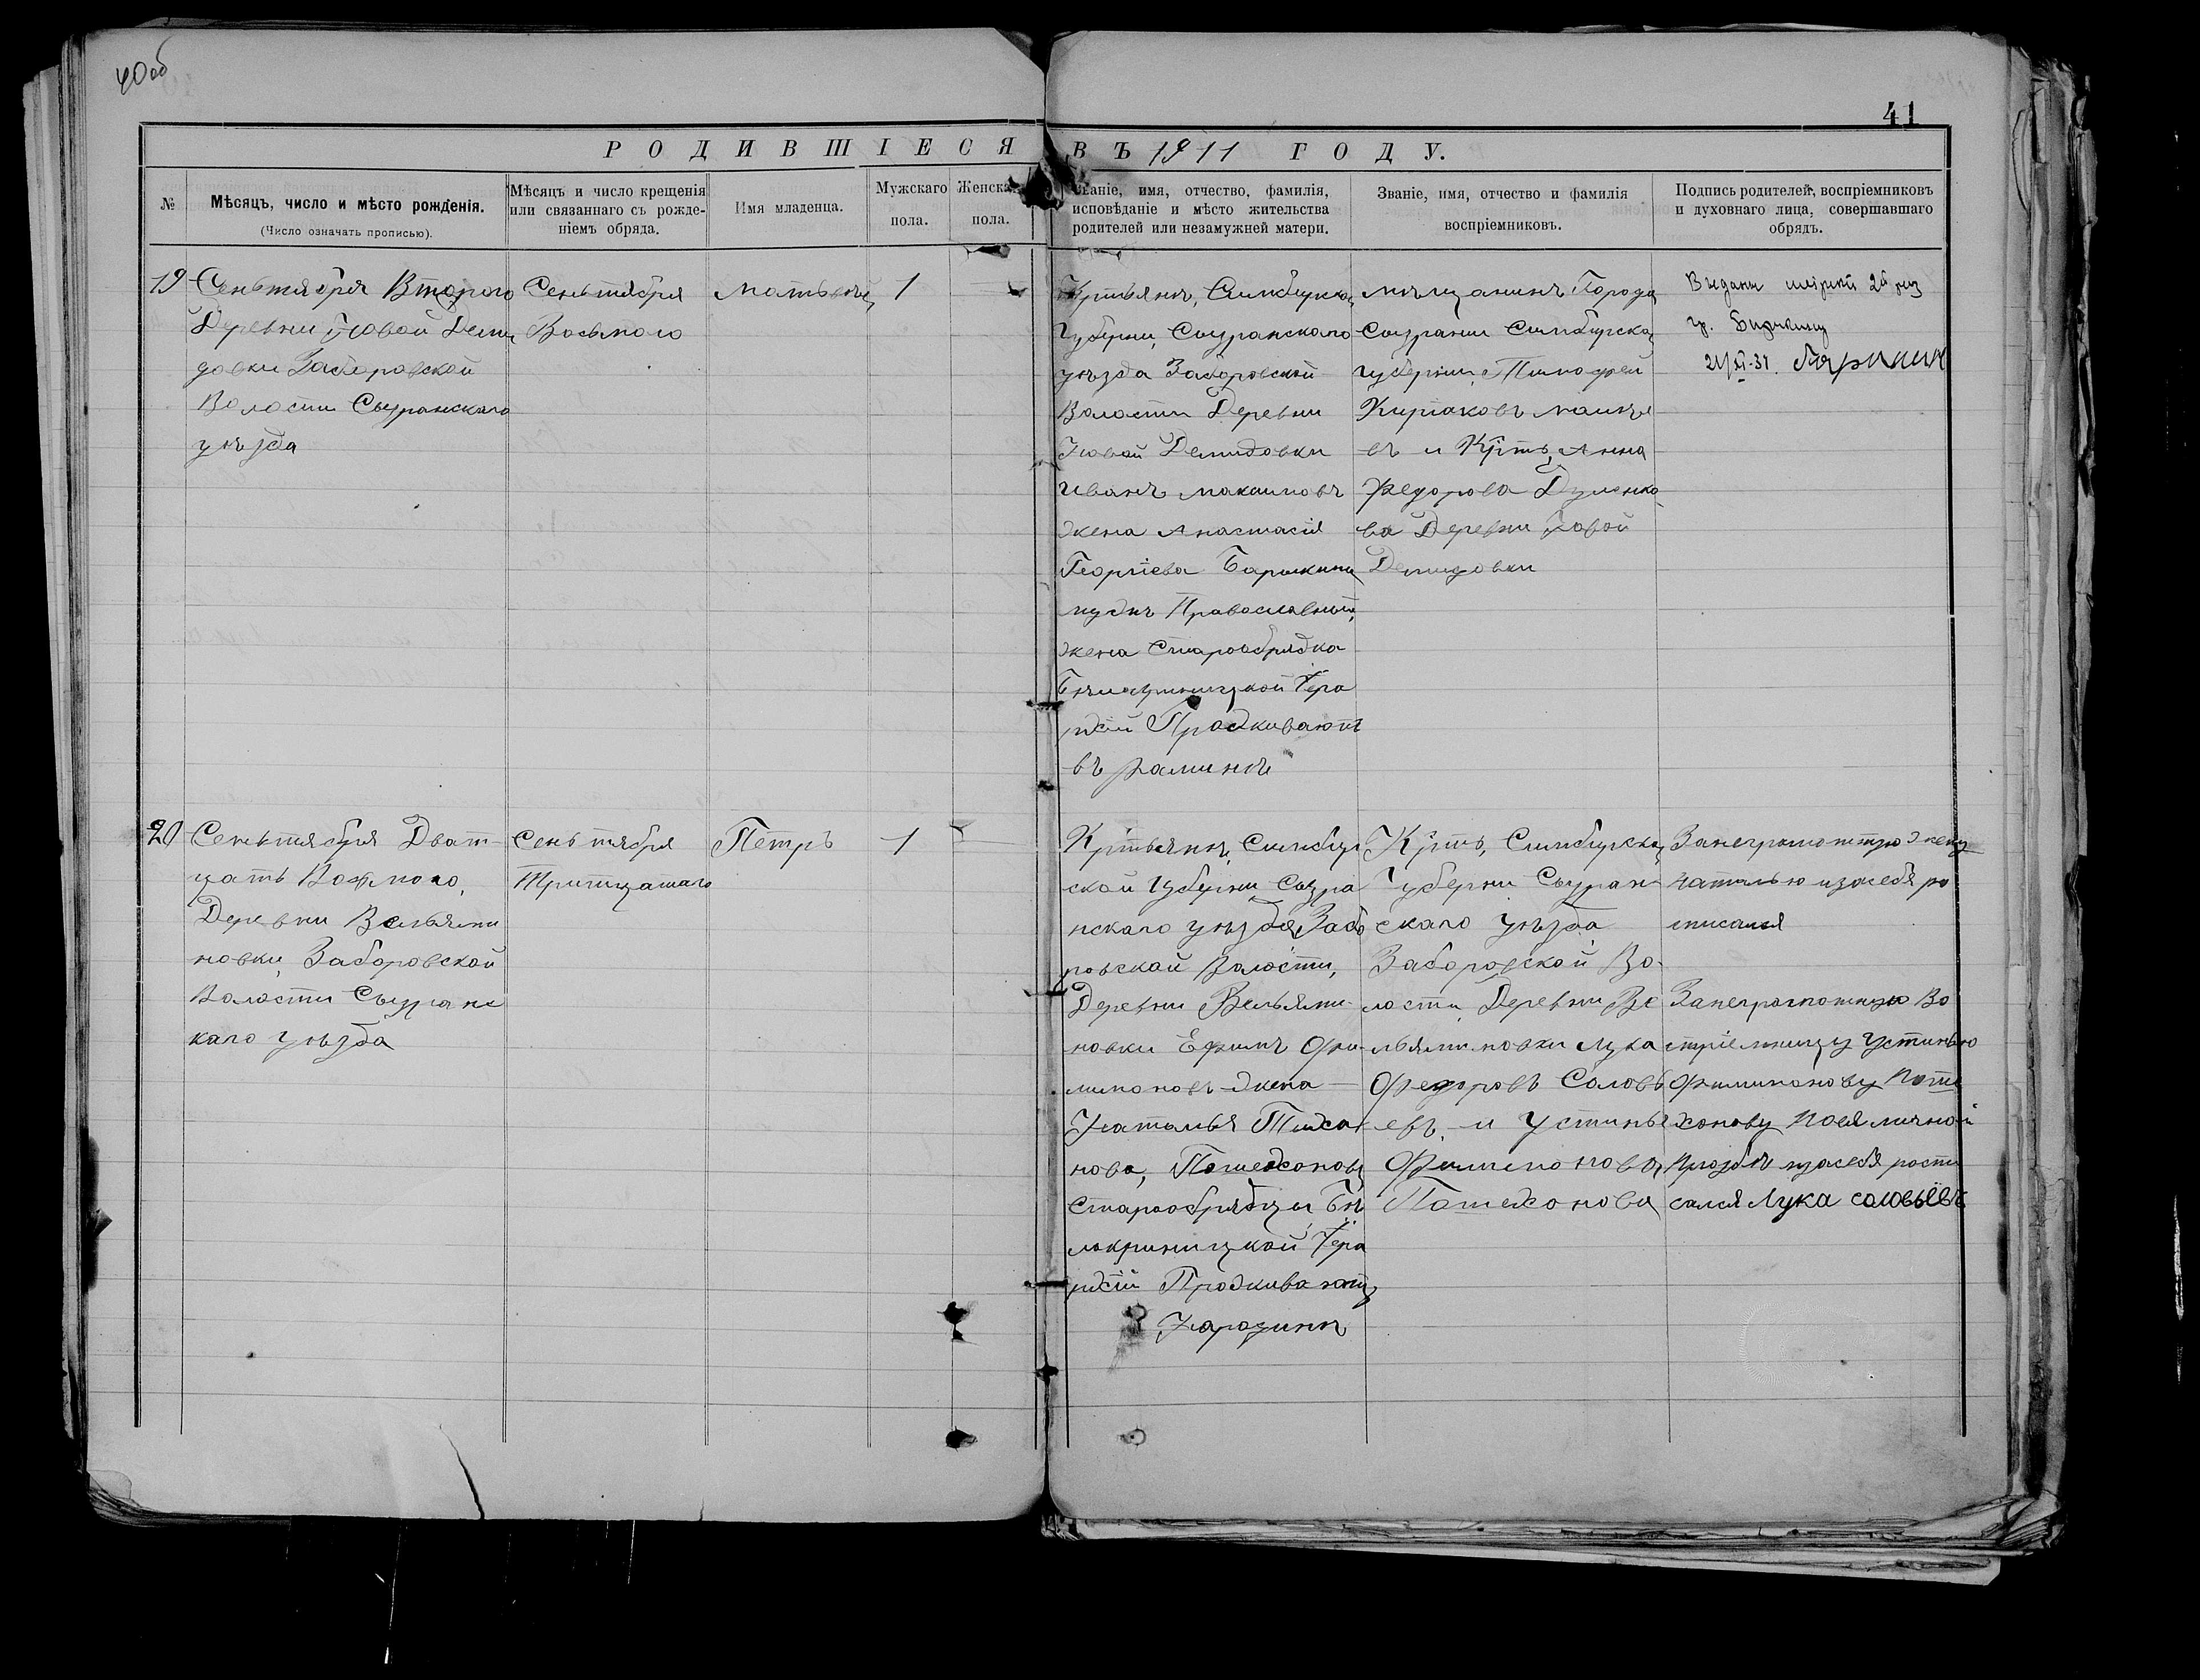 40об
41
РОДИВШІЕСЯ ВЪ 1911 ГОДУ.
№
Мѣсяцъ, число и мѣсто рожденія.
(Число означать прописью).
Мѣсяцъ и число крещенія
или связаннаго съ рожде-
ніемъ обряда.
Имя младенца.
Мужскаго
пола.
Женска
пола.
Званіе, имя, отчество, фамилія,
исповѣданіе и мѣсто жительства
родителей или незамужней матери.
Званіе, имя, отчество и фамилія
воспріемниковъ.
Подпись родителей, воспріемниковъ
и духовнаго лица, совершавшаго
обрядъ.
19
Сеньтября Второго
Деревни Новой Деми
довки Заборовской
Волости Сызранскаго
уѣзда
Сеньтября
Восьмого
1
Симбирско
Губерни, Сызранскаго
уѣзда Заборовской
Волости Деревни
Новой Демидовки
Иванъ Максимовъ
жена Анастасія
Георгіева
мужъ Православный,
жена Старообрядка
Бѣлокриницкой Іера
рхіи Проживают
въ
мѣщанинъ Города
Сызрани Симбирско
губерни, Тимофей
Киріаковъ
въ и Крть, Анна
Федорова
ва Деревни Новой
Демидовки
Выдан 2й раз
гр.
21/XI-31.
20
Сеньтября Дват-
цать Восмого,
Деревни Вельями
новки, Заборовской
Волости Сызранс
каго уѣзда
Сеньтября
Тритцатаго
Петръ
1
Симбир
ской Губерни Сызра
нскаго уѣзда, Забо
ровской Волости,
Деревни Вельями-
новки Ефимъ Фи-
лимоновъ жена
Наталья Тиха
нова,
Старообрядцы Бѣ
локриницкой Іера
рхіи Проживают
Крть, Симбирско
Губерни Сызран-
скаго уѣзда
Заборовской Во-
лости, Деревни Ве
льяминовки Лука
Федоровъ Соловь
евъ, и Устинья
Филимонова,
Занеграмотную жену
Наталью изасебя ро
списался
Занеграмотную Во
спріемницу Устинью
Филимонову Поше
хонову Поея личной
прозбѣ изасебя роспи
сался Лука соловьевъ